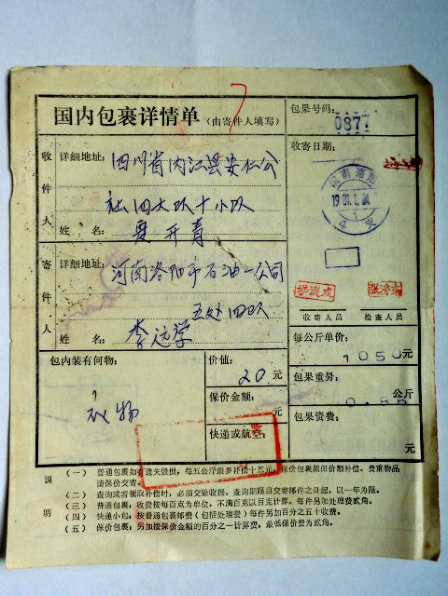 国内包裹详情单（由寄件人填写）
包裹号码:
0877
收件人
详细地址: 四川省内江县安仁公
社四大队十小队
姓名: 夏开青
收寄日期:
河南洛阳
寄件人
详细地址: 河南洛阳市石油一公司
五处四队
姓名: 李远学
收寄人员 检查人员
包内装有何物:
衣物
价值:
20元
保价金额:
元
快递或航空:
每公斤单价:
1050元
包裹重量:
公斤
0.85
包裹资费:
（一） 普通包裹如有遗失毁损，每五公斤最多补偿十元，保价包裹照保价额补偿，贵重物品
请保价交寄。
（二） 查询或者领取补偿时，必须交验收据。查询期限自交寄邮件之日起，以一年为限。
（三） 普通包裹，收费按每百克为单位，不满百克以百克计算。每件另加处理费贰角。
（四） 快递小包：按普通包裹邮费（包括处理费）每件另加百分之五十收费。
（五） 保价包裹：另加按保价金额的百分之一计算费，最低保价费为贰角。